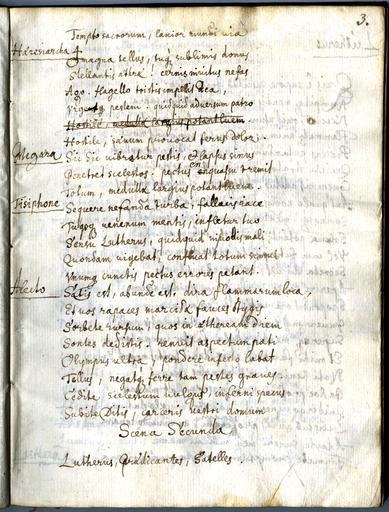 3.
Templo sacrorum, laxior mundi via
Hæresiarcha O magna tellus, tuque sublimis domus
Stellantis æthræ cernis invitus nefas
Ago. flagello tristis impellit Dea,
Vigentq pestem. quidquid adversum patro
Hostile, medulla largius potant luem
Hostile, sævum provocat ferrum dolor.
Megæra Sic Sic vibratur pestis, et lapsus sinus
Penetret scelestos. pectus en quasu tremit
Totum, medullæ largius potant luem.
Tisiphone Sequere nefanda turba, fallaces face
Tuque venenum mentis, infletur tuo
Sensu Lutherus, quidquid mali
Quondam vigebat, confluat totum simul
Unum cunctis pectus errores petant.
Alecto Satis est, abunde est. dira flammarum loca,
Et vos rapaces marcida fauces Stygis
Sorbete rursum, quos in ætheream diem
Sontes dedistis. renuit aspectum pati
Olympus ultra, pondere infecto labat
Tellus, negatq ferre tam pestes graves
Cedite, scelestum vulgus, inferni specus
Subite Ditis, carceris vestri domum
Scena Secunda
Lutherus, Prædicantes, Satelles.